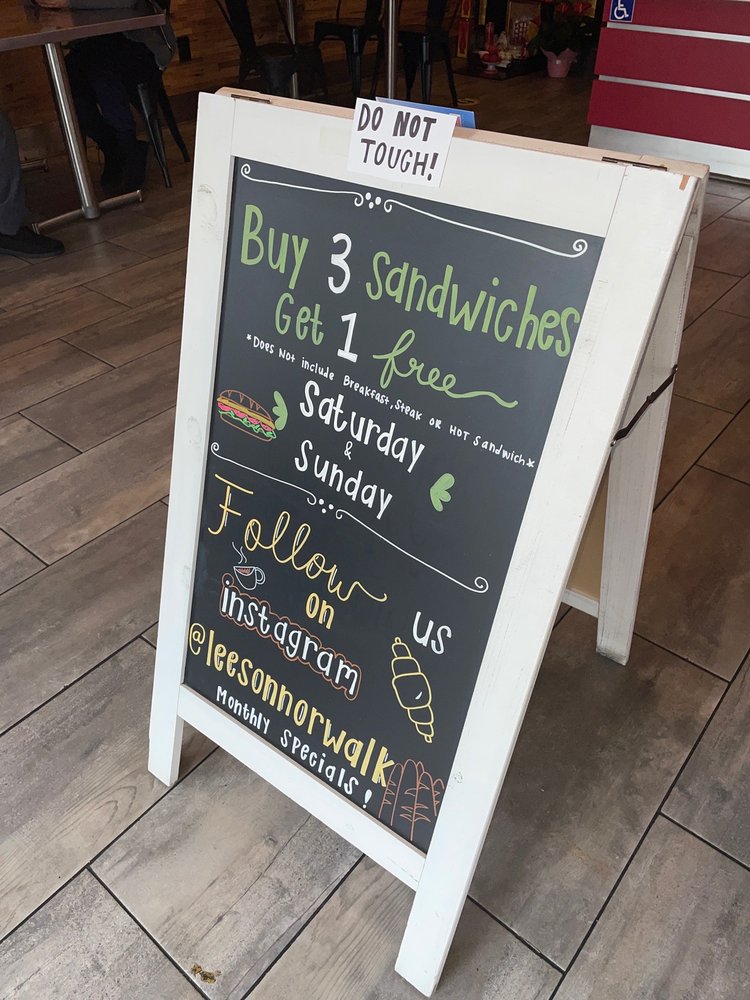 DO NOT
TOUCH!
Buy 3 Sandwiches
Get 1 free
*Does Not include Breakfast, Steak or HOT Sandwich*
Saturday
&
Sunday
Follow
us
on
instagram
@leesonnorwalk
Monthly Specials!